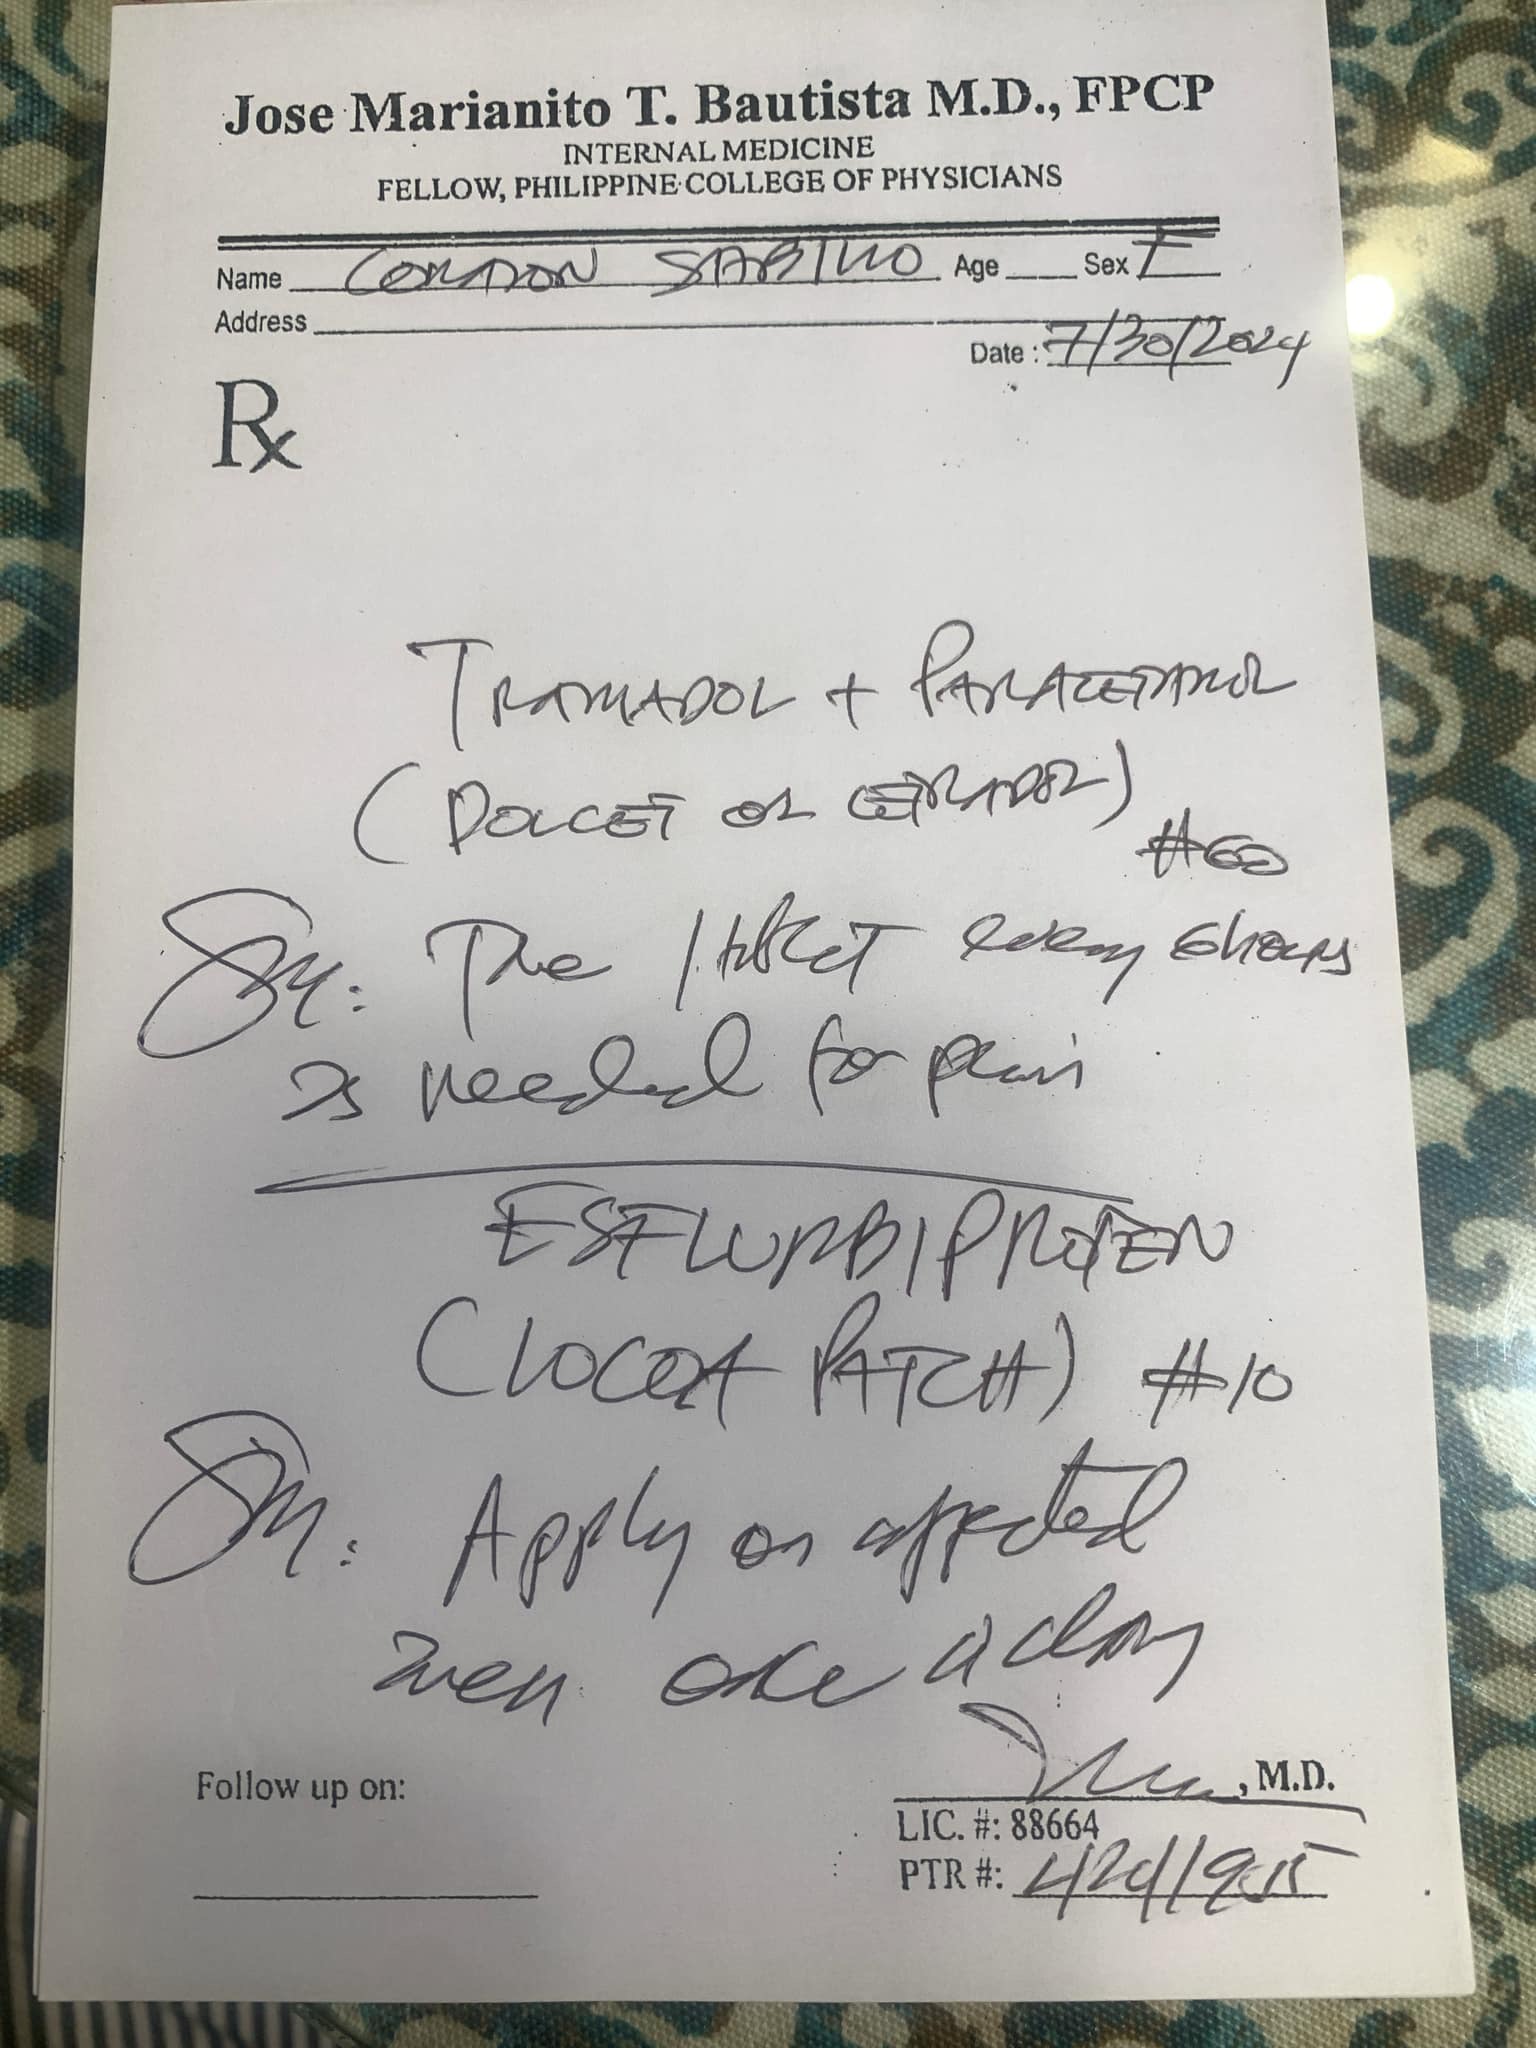 Jose Marianito T. Bautista M.D., FPCP
INTERNAL MEDICINE
FELLOW, PHILIPPINE COLLEGE OF PHYSICIANS
Name CORAZON SABINO Age Sex F
Address
Date : 7/30/2024
Rx
TRAMADOL + PARACETAMOL
(DOLCET OR CETRADOL)
#60
Sig: Take 1 tablet every 6 hours
as needed for pain
ESFLURBIPROFEN
(LOCOA PATCH) #10
Sig: Apply on affected
area once a day
Follow up on:
, M.D.
LIC. #: 88664
PTR #: